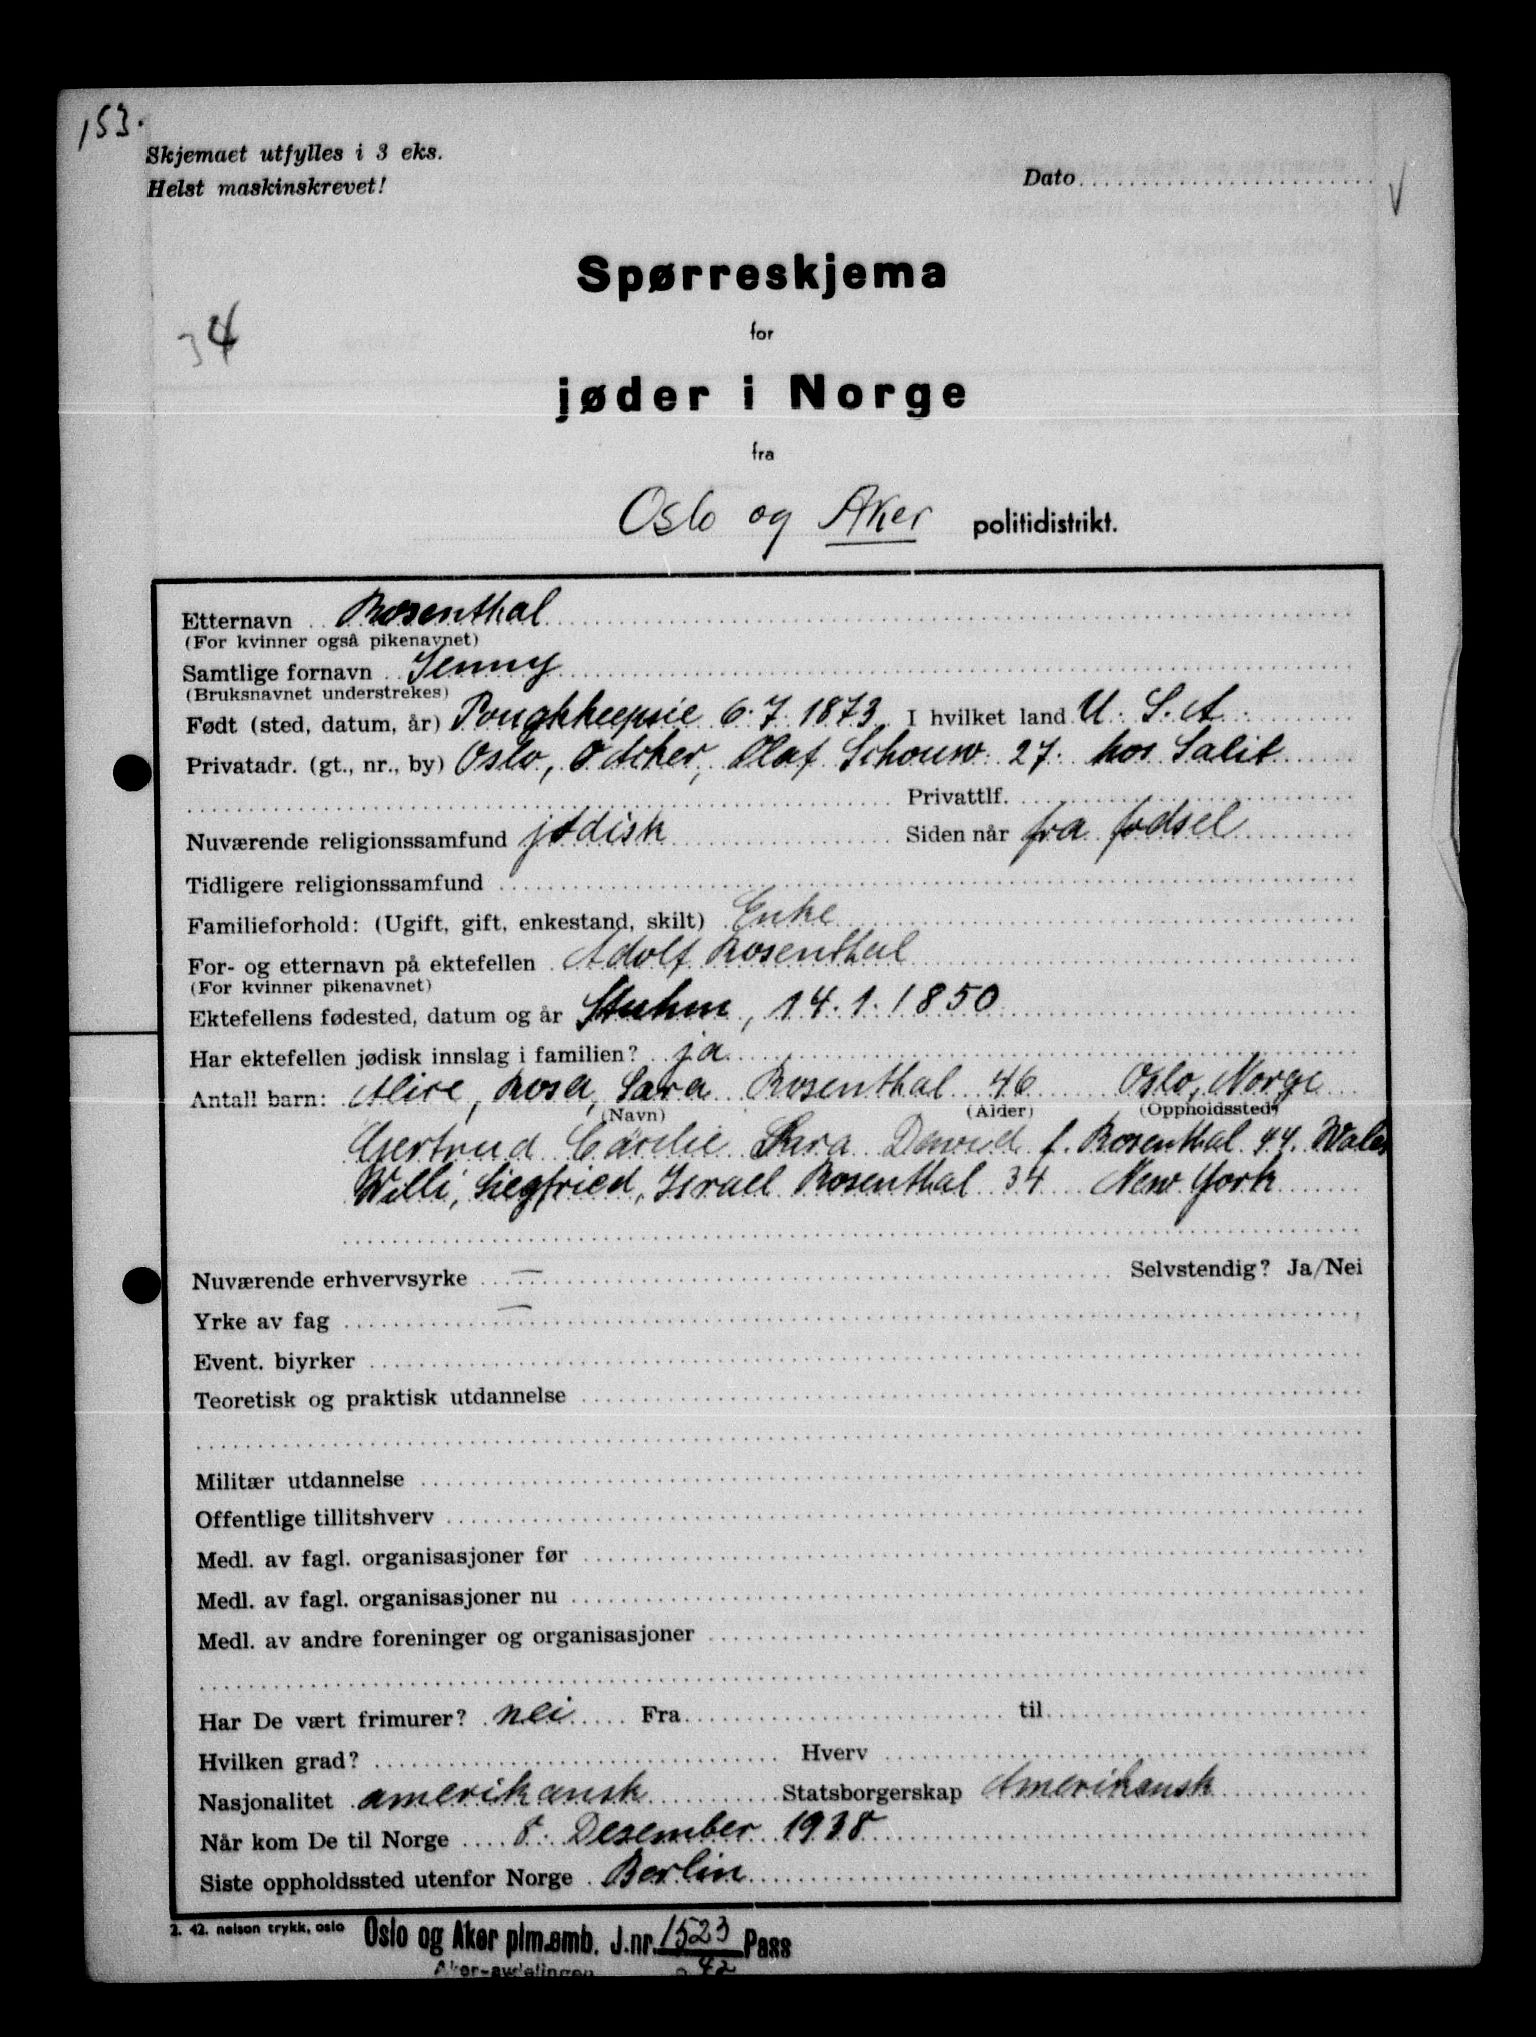 153.
Skjemaet utfylles i 3 eks.
Helst maskinskrevet!
Dato
34
Spørreskjema
for
jøder i Norge
fra
Oslo og Aker politidistrikt.
Etternavn Rosenthal
(For kvinner også pikenavnet)
Samtlige fornavn Jenny
(Bruksnavnet understrekes)
Født (sted, datum, år) Poughkeepsie 6.7.1873. I hvilket land U.S.A.
Privatadr. (gt., nr., by) Oslo, Ö Acker, Olaf Schouw. 27. hos Salit
Privattlf.
Nuværende religionssamfund jødisk Siden når fra fødsel
Tidligere religionssamfund
Familieforhold: (Ugift, gift, enkestand, skilt) Enke
For- og etternavn på ektefellen Adolf Rosenthal
(For kvinner pikenavnet)
Ektefellens fødested, datum og år Stuhm, 14.1.1850
Har ektefellen jødisk innslag i familien? ja
Antall barn: Alice, Rosa, Sara Rosenthal 46 Oslo, Norge
(Navn) (Alder) (Oppholdssted)
Gertrud Sara David f. Rosenthal 44. Wales
Willi, Siegfried, Israel Rosenthal 34 New York
Nuværende erhvervsyrke — Selvstendig? Ja/Nei
Yrke av fag —
Event. biyrker
Teoretisk og praktisk utdannelse
Militær utdannelse
Offentlige tillitshverv
Medl. av fagl. organisasjoner før
Medl. av fagl. organisasjoner nu
Medl. av andre foreninger og organisasjoner
Har De vært frimurer? nei Fra til
Hvilken grad? Hverv
Nasjonalitet amerikansk Statsborgerskap Amerikansk
Når kom De til Norge 8. Desember 1938
Siste oppholdssted utenfor Norge Berlin
2. 42. nelson trykk, oslo
Oslo og Aker plm.emb. J.nr. 1523 Pass
Aker-avdelingen 42